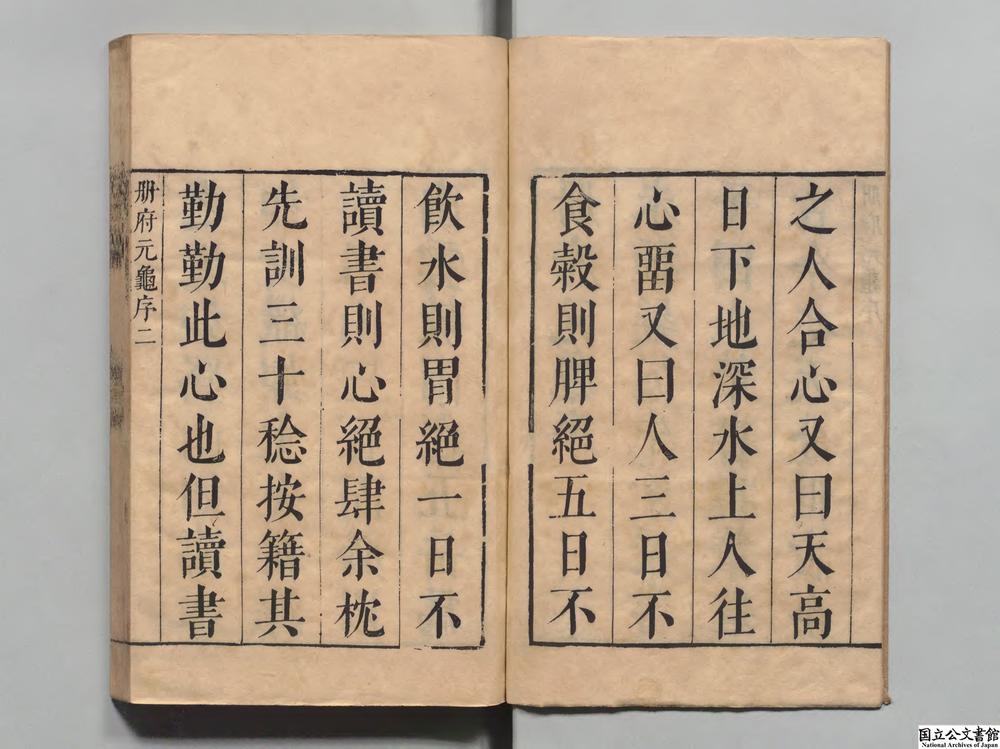 之人合心又曰天高
日下地深水上人往
心畱又曰人三日不
食穀則脾絕五日不
飲水則胃絕一日不
讀書則心絕肆余枕
先訓三十稔按籍其
勤勤此心也但讀書
册府元龜序二
国立公文書館
National Archives of Japan